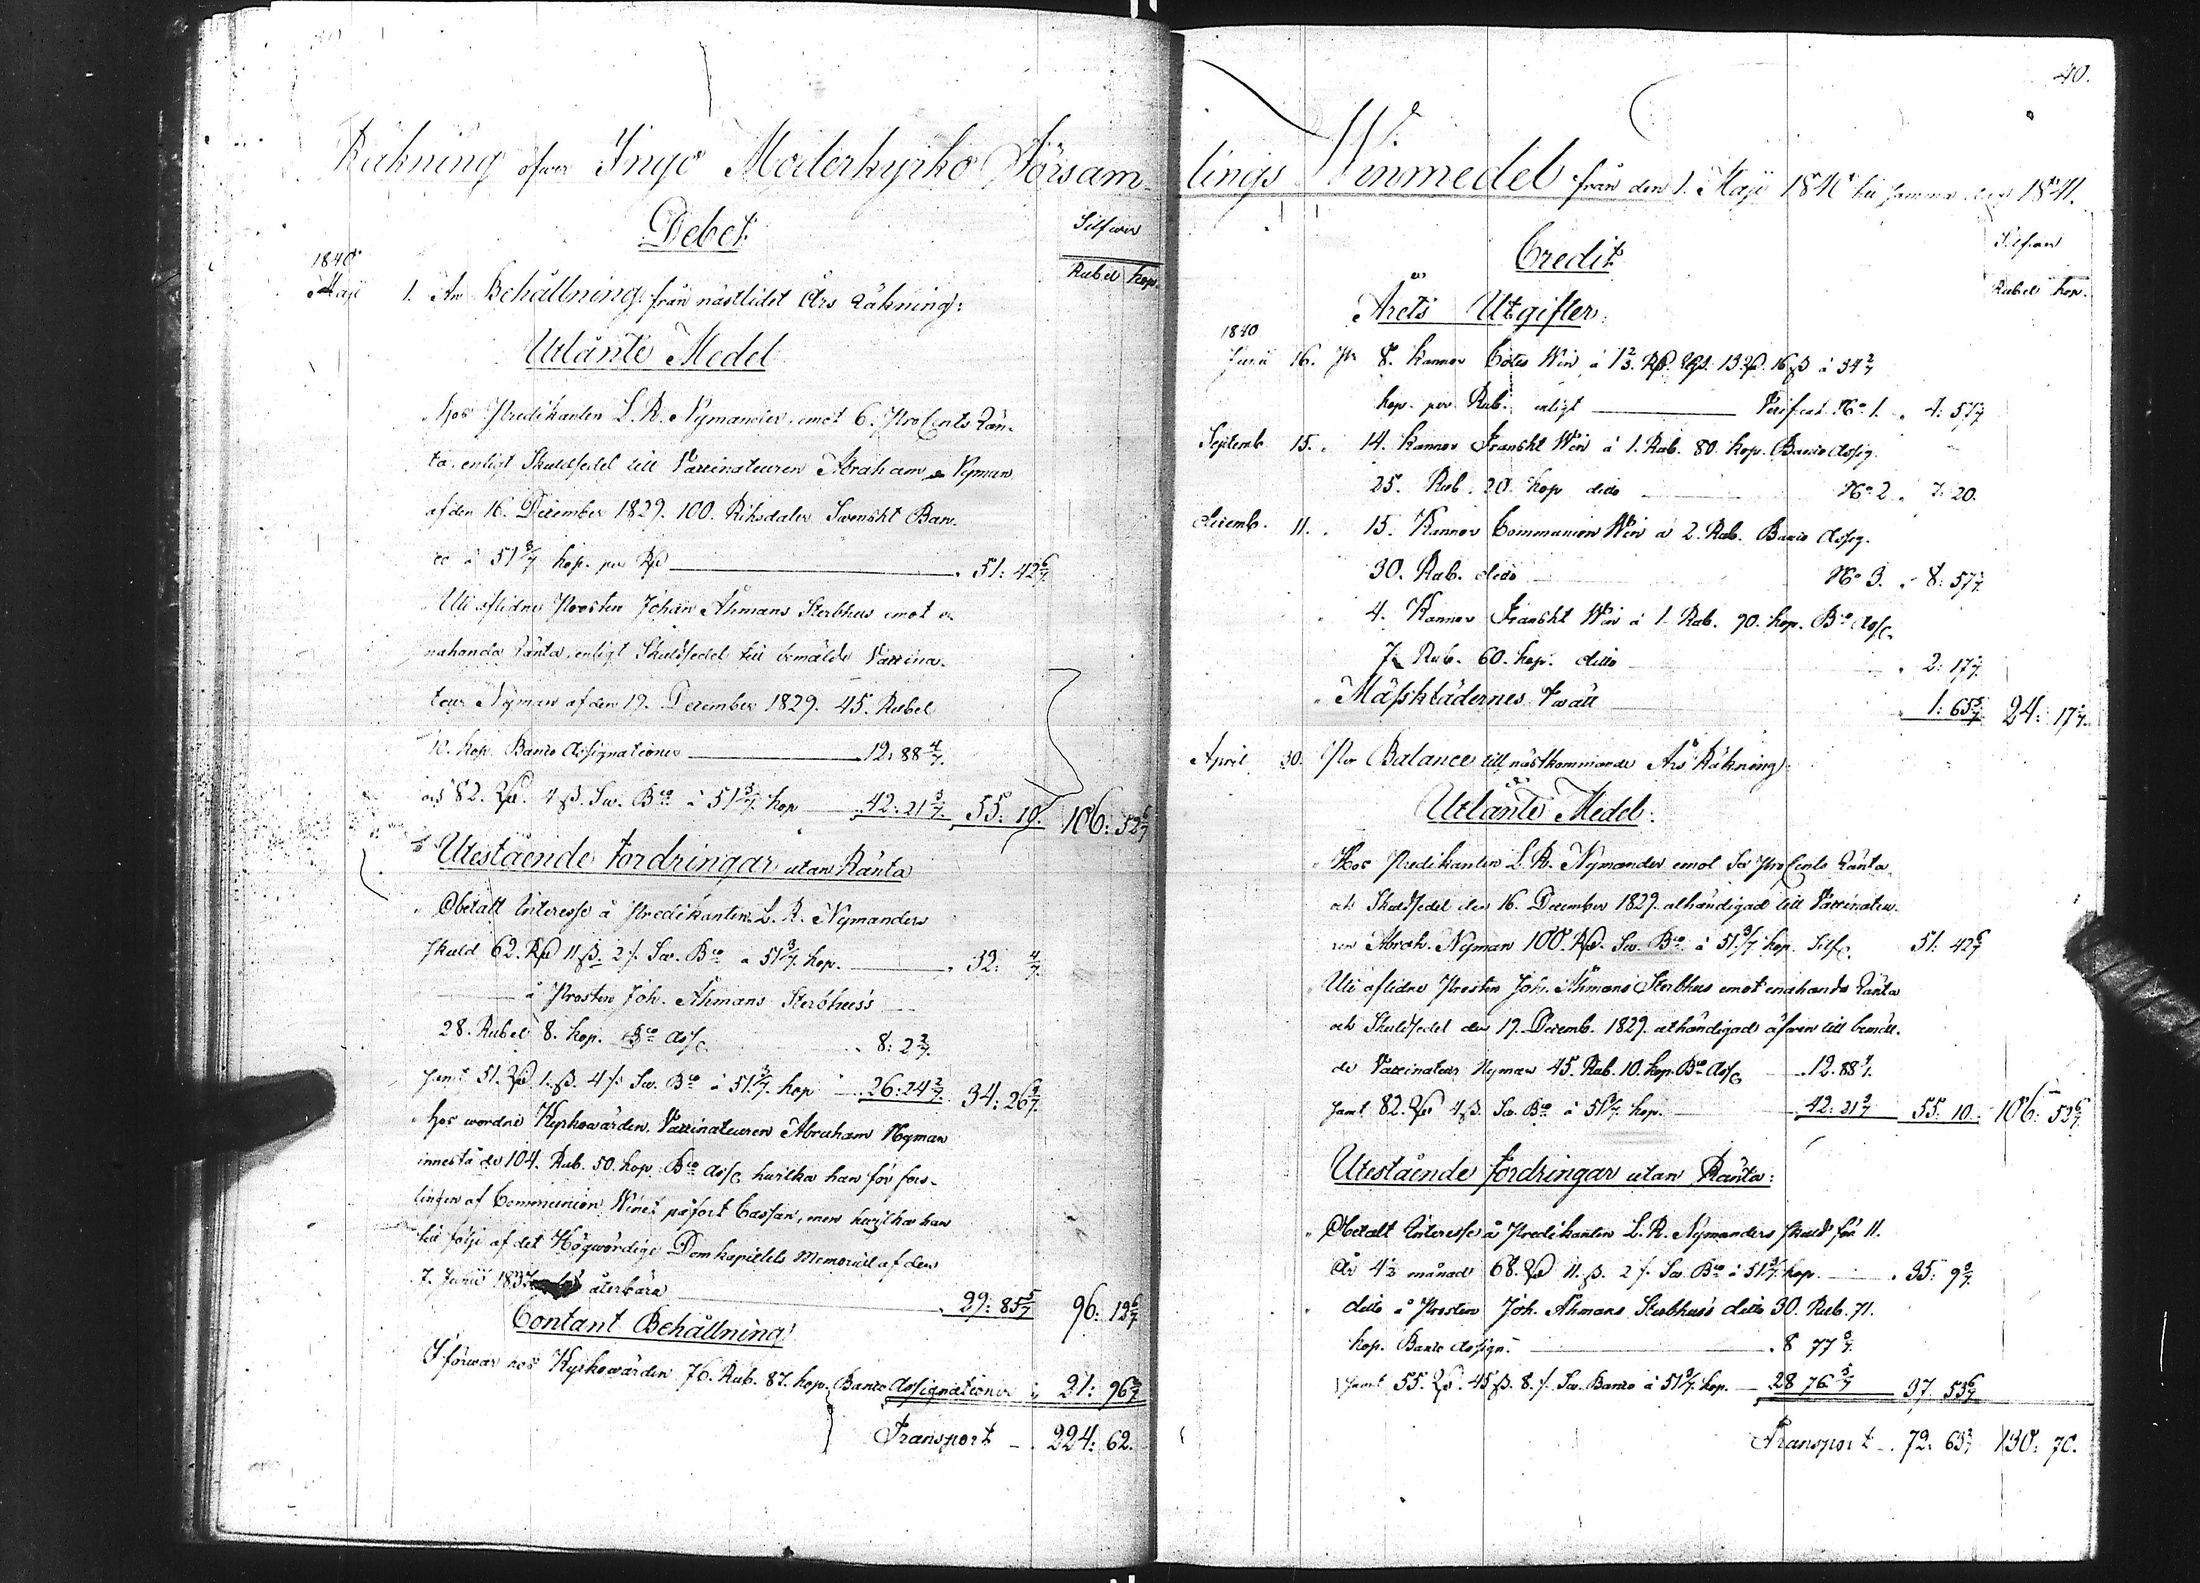 Räkning öfwer Ingo Moderkyrko Församlings Winmedel från den 1. Maji 1840 till samma dag 1841.
Debet
Silfwer
Rubel kop.
1840
Maji 1. An Behållning från nästlidet Års Räkning:
Utlånte Medel
Hos Predikanten L. R. Nymander, emot 6. ProCents Rän-
ta, enligt Skuldsedel till Vaccinateuren Abraham Nyman
af den 16. December 1829. 100. Riksdaler Swenskt Ban-
co à 51 3/7 kop. per Rd 51: 42 6/7
Uti aflidne Prosten Johan Åhmans Sterbhus emot e-
nahanda Ränta, enligt Skuldsedel till bemälde Vaccina-
teur Nyman af den 19. December 1829. 45. Rubel
10. kop. Banco Assignationer 12: 88 4/7.
och 82. Rd. 4 ß. Sw. Bco à 51 3/7. kop 42: 21 3/7. 55: 10. 106: 52 6/7
Utestående Fordringar utan Ränta
Obetalt Interesse å Predikanten L. R. Nymanders
skuld 62. Rd 11 ß. 2 f. Sw. Bco à 51 3/7. kop. 32: 4/7.
å Prosten Joh. Åhmans Sterbhus's
28. Rubel 8. kop. Bco Ass. 8: 2 2/7.
samt 51. Rd 1. ß. 4 f. Sw. Bco à 51 3/7. kop 26: 24 2/7. 34: 26 4/7.
Hos wordne Kyrkowärden, Vaccinateuren Abraham Nyman
innestående 104. Rub. 50. kop. Bco Ass. hwilka han för fors-
lingen af Communion Winet påfört Cassan, men hwilka han
till följe af det Högwördige Domkapitlets Memorial af den
7. Junii 1837 återbära 29: 85 5/7 96: 12 6/7
Contant Behållning
I förwar hos Kyrkowärden 76. Rub. 87. kop. Banco Assignationer 21: 96 2/7
Transport 224: 62.
40.
Credit
Silfwer
Rubel kop.
Årets Utgifter:
1840
Junii 16. Pr 8. Kannor Cotes Win à 1 2/3. Rd. Rgs. 13 Rd. 16 ß à 34 2/7
kop. per Rub. enligt Verificat. No 1. 4: 57 1/7
Septemb. 15. 14. Kannor Franskt Win à 1. Rub. 80. kop. Banco Assig.
25. Rub. 20. kop dito No 2. 7: 20.
Decemb. 11. 15. Kannor Communion Win à 2. Rub. Banco Assig.
30. Rub. dito No 3. 8: 57 1/7
4. Kannor Franskt Win à 1. Rub. 90. kop. Bco Ass.
7. Rub. 60. kop. ditto 2: 17 1/7
Mässklädernes Twätt 1: 65 5/7 24: 17 1/7.
April 30. Per Balance till nästkommande Års Räkning:
Utlånte Medel:
Hos Predikanten L. R. Nymander emot Sex ProCents Ränta
och Skuldsedel den 16. December 1829. athändigad till Vaccinateu-
ren Abrah. Nyman 100. Rd. Sw. Bco à 51. 3/7 kop. Silf. 51: 42 6/7
Uti aflidne Prosten Joh. Åhmans Sterbhus emot enahanda Ränta
och Skuldsedel den 19. Decemb. 1829. athändigad äfwen till bemäl-
de Vaccinateur Nyman 45. Rub. 10. kop. Bco Ass. 12. 88 4/7.
samt 82. Rd 4 ß. Sw. Bco à 51 3/7. kop. 42: 21 3/7 55. 10. 106: 52 6/7.
Utestående Fordringar utan Ränta:
Obetalt Interesse å Predikanten L. R. Nymanders skuld för 11.
År 4 1/3 månad 68. Rd 11. ß. 2 f. Sw. Bco à 51 3/7. kop. 35: 9 2/7.
ditto å Prosten Joh. Åhmans Sterbhus's ditto 30. Rub. 71.
kop. Banco Assign. 8 77 3/7
samt 55. Rd. 45 ß. 8. f. Sw. Banco à 51 3/7. kop. 28 76. 3/7 37. 53 6/7
Transport 72. 63 1/7 130: 70.